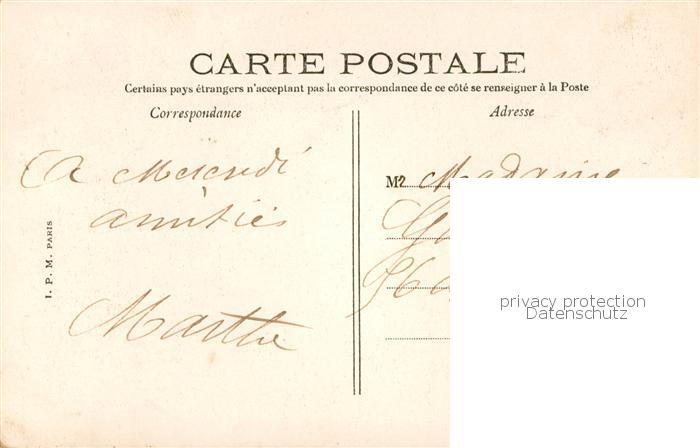 CARTE POSTALE
Certains pays étrangers n'acceptant pas la correspondance de ce côté se renseigner à la Poste
Correspondance
Adresse
A Mercredi
amitiés
Marthe
I. P. M. PARIS
M Madame
privacy protection
Datenschutz